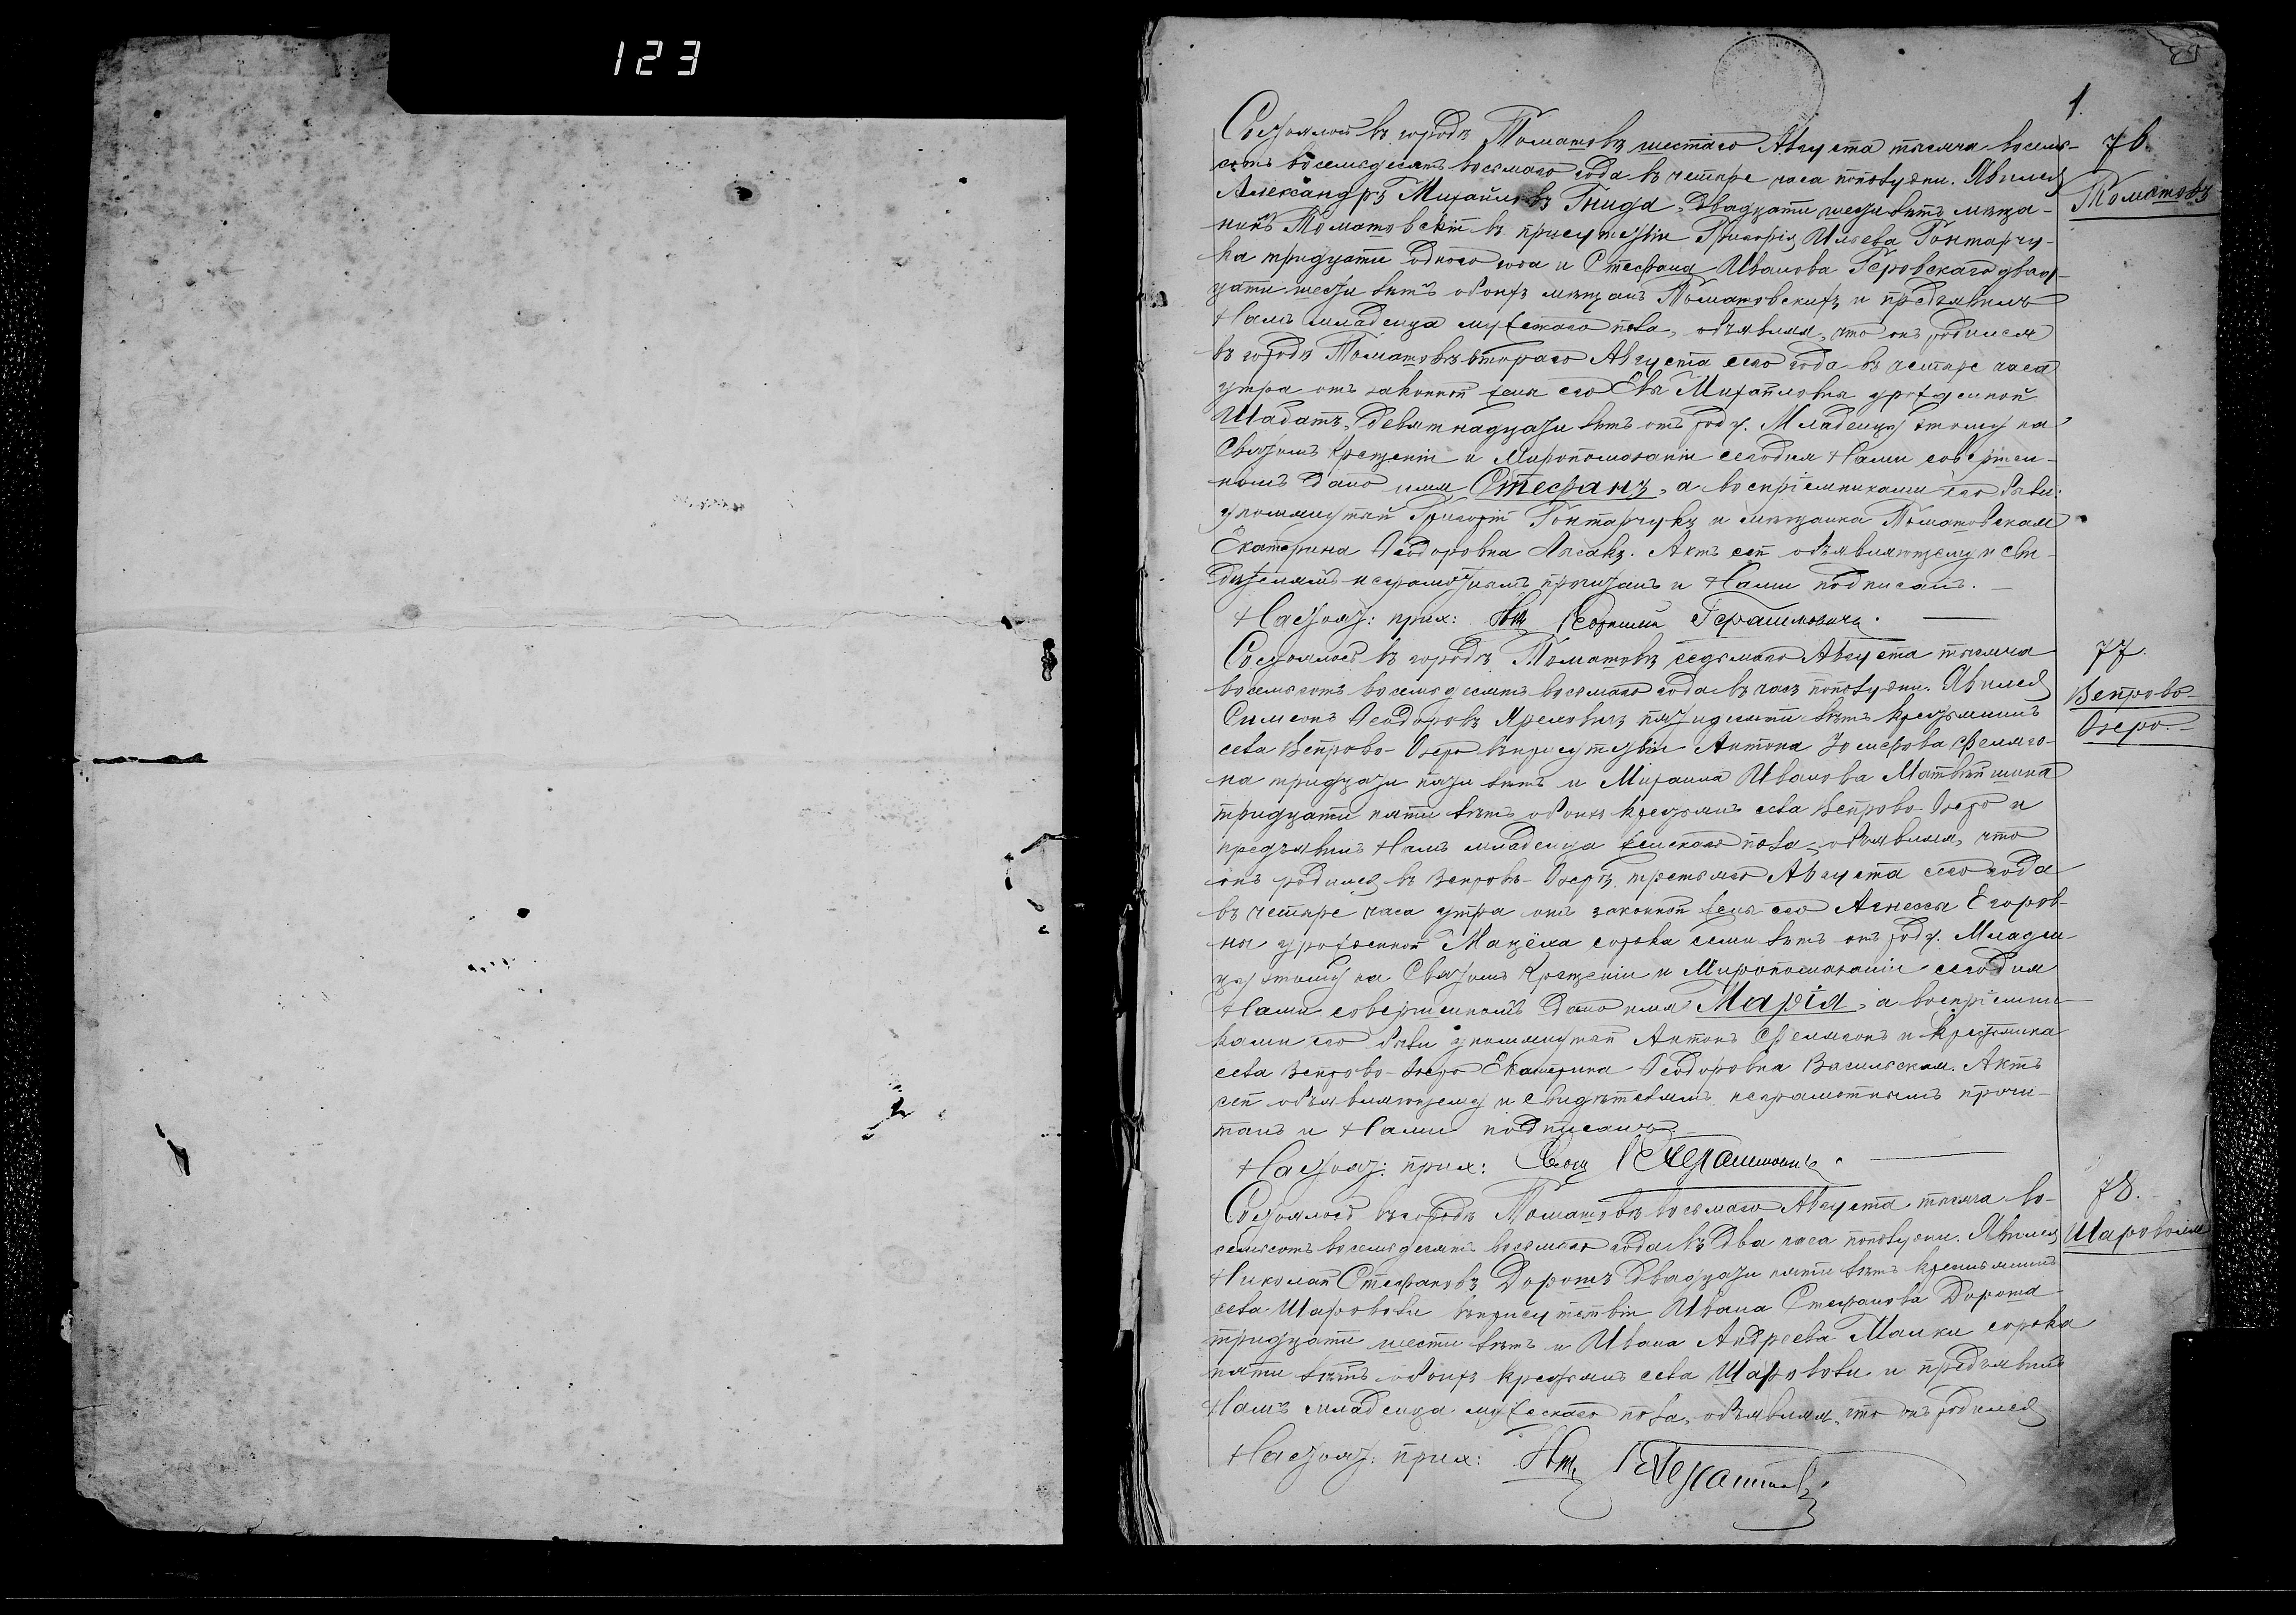 123
1.
76.
Томашовъ
Состоялось въ городѣ Томашовѣ шестаго Августа тысяча восемь-
сотъ восемьдесятъ восьмаго года въ четыре часа пополудни. Явился
Александръ Михайловъ Гнида, двадцати шести лѣтъ мѣща-
нинъ Томашовскій въ присутствіи Григорія Ильева Гонтарчу-
ка тридцати одного года и Стефана Иванова Геровскаго двад-
цати шести лѣтъ обоихъ мѣщанъ Томашовскихъ и предъявилъ
Намъ младенца мужескаго пола, объявляя, что онъ родился
въ городѣ Томашовѣ втораго Августа сего года въ четыре часа
утра отъ законной жены его Евы Михайловны урожденной
Шабатъ, девятнадцати лѣтъ отъ роду. Младенцу этому на
Святомъ Крещеніи и Миропомазаніи сегодня Нами совершен-
номъ дано имя Стефанъ, а воспріемниками его были:
упомянутый Григорій Гонтарчукъ и мѣщанка Томашовская
Екатерина Ѳеодоровна Лысакъ. Актъ сей объявляющему и сви-
дѣтелямъ неграмотнымъ прочитанъ и Нами подписанъ.
Настоят: прих:
77.
Вепрово-
Озеро.
Состоялось въ городѣ Томашовѣ седьмаго Августа тысяча
восемьсотъ восемьдесятъ восьмаго года въ часъ пополудни. Явился
Симеонъ Ѳеодоровъ Яремовичъ пятидесяти лѣтъ крестьянинъ
села Вепрово-Озеро въ присутствіи Антона Іосифова Фелиго-
на тридцати пяти лѣтъ и Михаила Иванова Матвѣйшина
тридцати пяти лѣтъ обоихъ крестьянъ села Вепрово-Озеро и
предъявилъ Намъ младенца женскаго пола, объявляя, что
онъ родился въ Вепровѣ-Озерѣ третьяго Августа сего года
въ четыре часа утра отъ законной жены его Агнессы Егоров-
ны урожденной Мацёха сорока семи лѣтъ отъ роду. Младен-
цу этому на Святомъ Крещеніи и Миропомазаніи сегодня
Нами совершенномъ дано имя Марія, а воспріемни-
ками его были упомянутый Антонъ Фелигонъ и крестьянка
села Вепрово-Озеро Екатерина Ѳеодоровна Василиская. Актъ
сей объявляющему и свидѣтелямъ неграмотнымъ прочи-
танъ и Нами подписанъ.
Настоят: прих:
78.
Шароволя
Состоялось въ городѣ Томашовѣ восьмаго Августа тысяча во-
семьсотъ восемьдесятъ восьмаго года въ два часа пополудни. Явился
Николай Стефановъ Дорошъ двадцати пяти лѣтъ крестьянинъ
села Шароволи въ присутствіи Ивана Стефанова Дороша
тридцати шести лѣтъ и Ивана Андреева Малки сорока
пяти лѣтъ обоихъ крестьянъ села Шароволи и предъявилъ
Намъ младенца мужескаго пола, объявляя, что онъ родился
Настоят: прих: